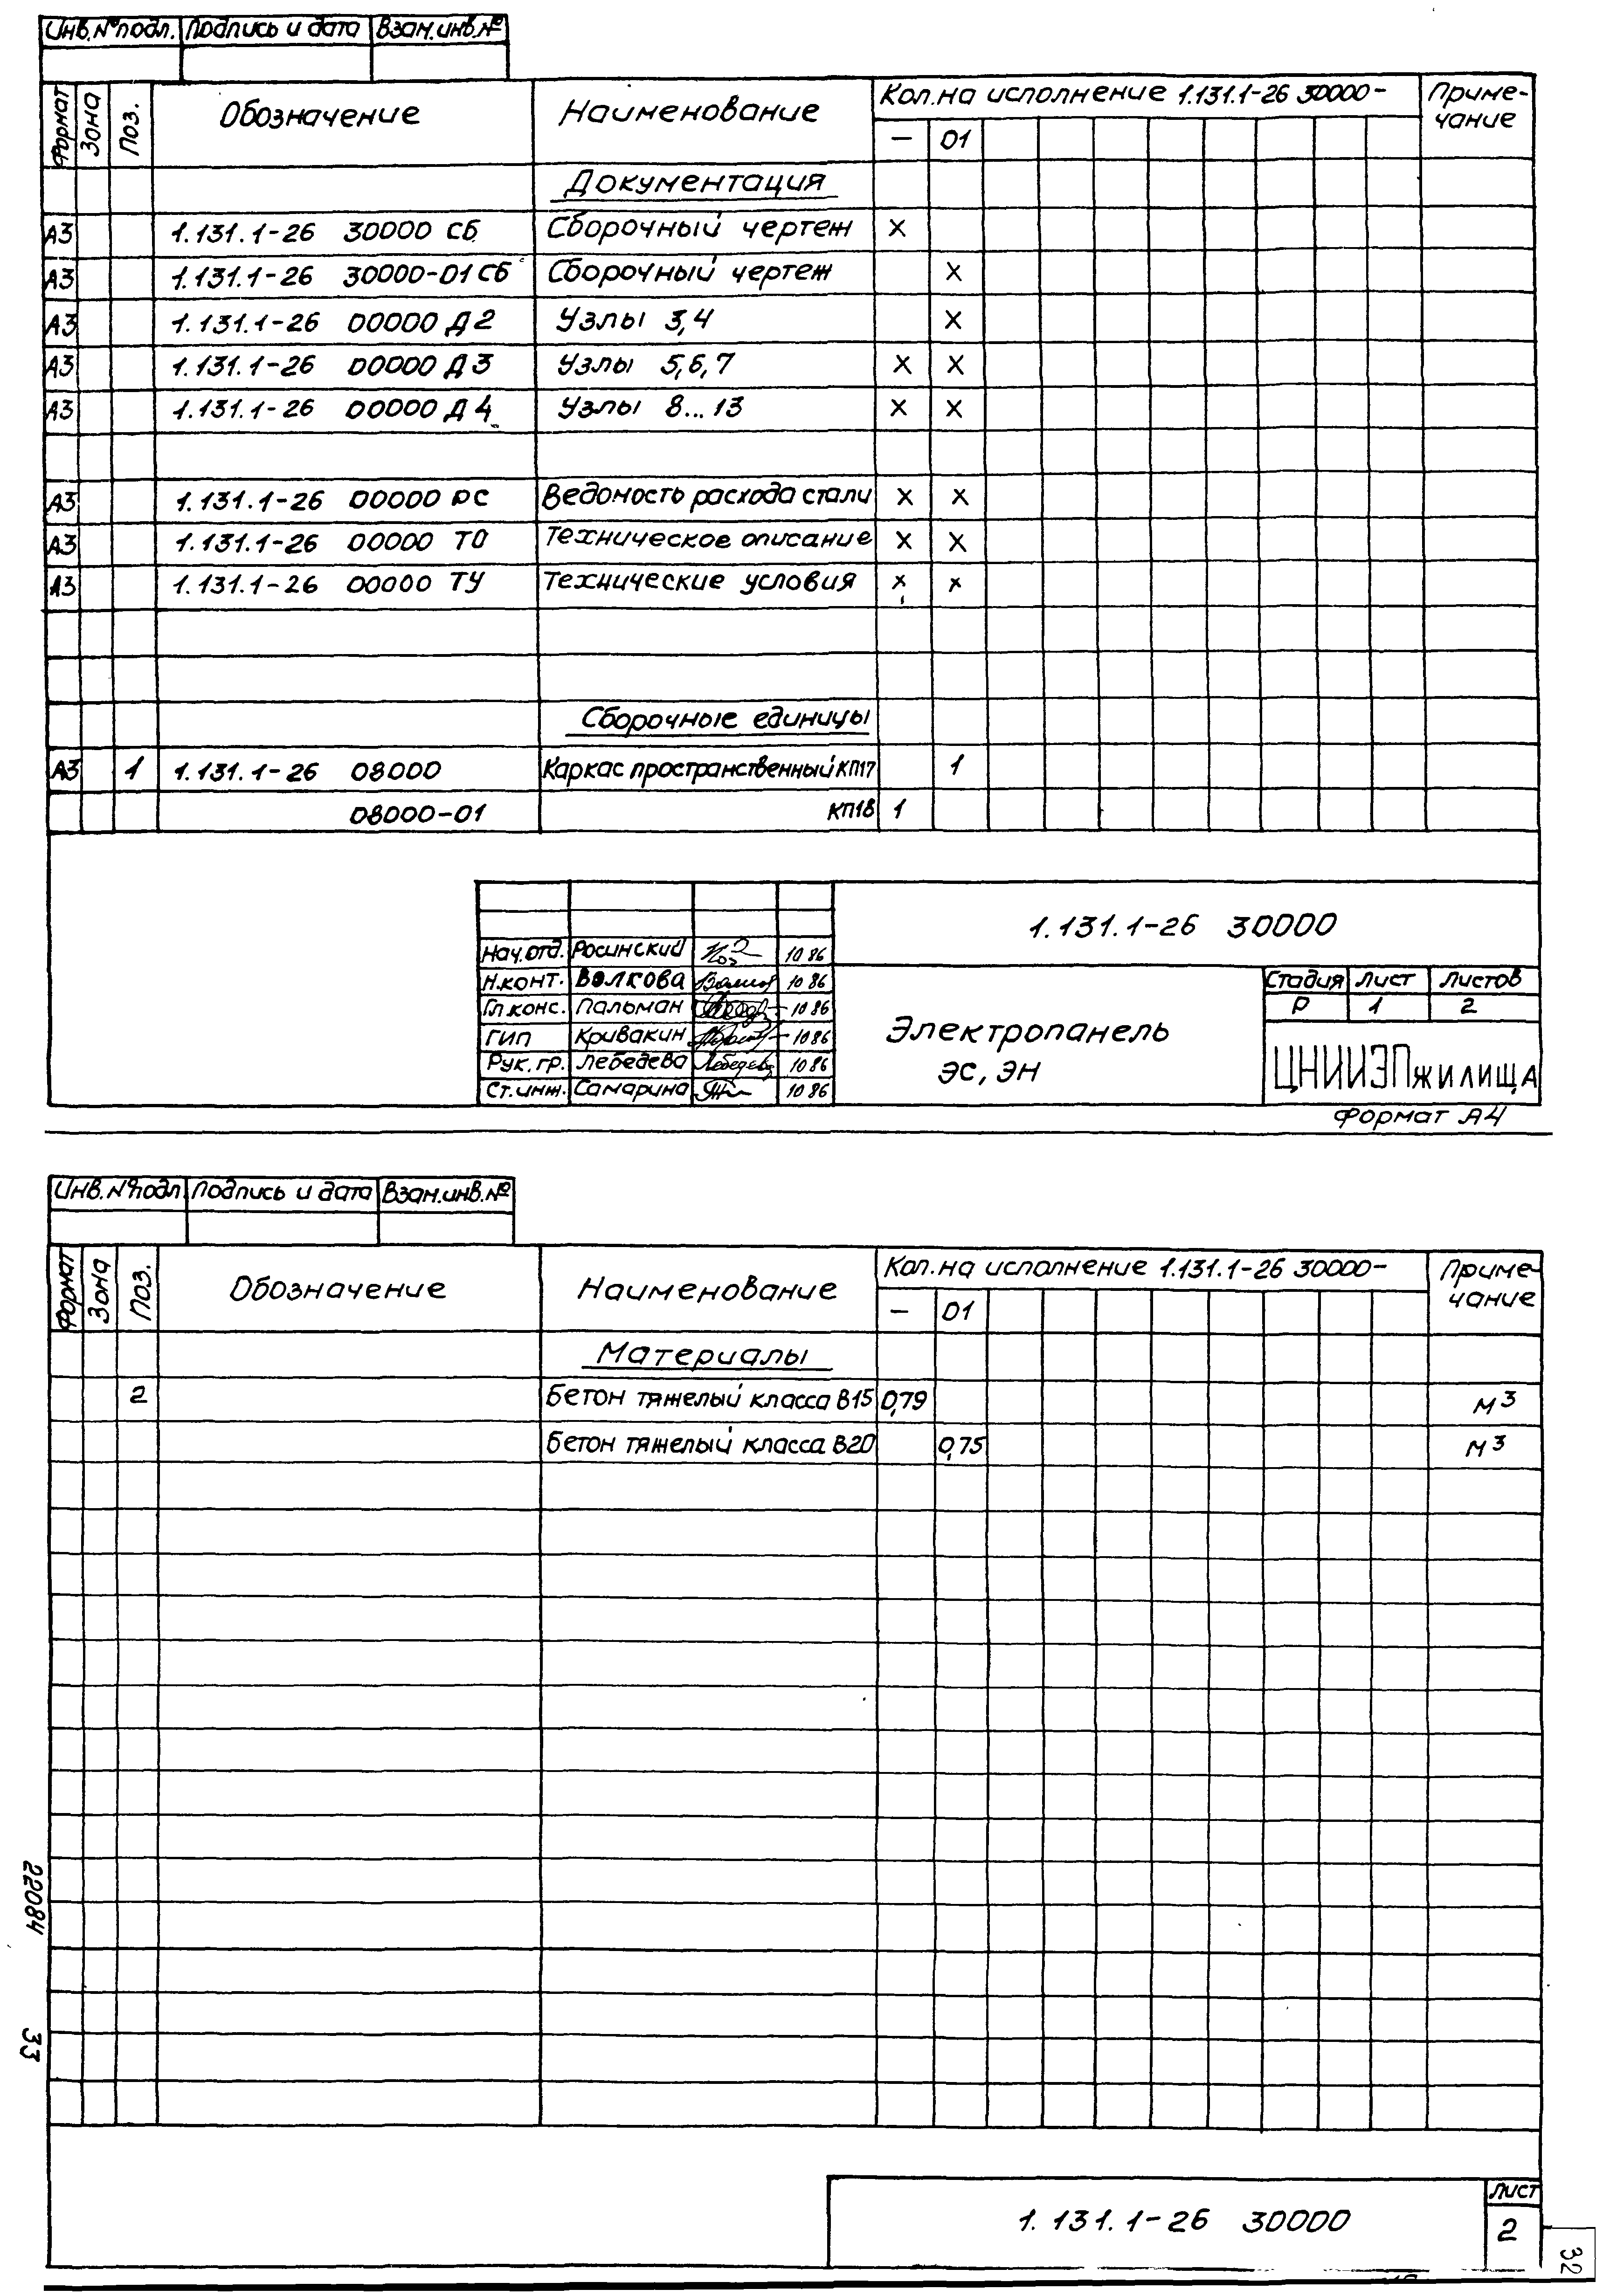 Инв.№подл. Подпись и дата Взам.инв.№
Формат Зона Поз. Обозначение Наименование Кол.на исполнение 1.131.1-26 30000- Приме-чание
— 01
Документация
А3 1.131.1-26 30000 СБ Сборочный чертеж X
А3 1.131.1-26 30000-01СБ Сборочный чертеж X
А3 1.131.1-26 00000 Д2 Узлы 3,4 X
А3 1.131.1-26 00000 Д3 Узлы 5,6,7 X X
А3 1.131.1-26 00000 Д4 Узлы 8...13 X X
А3 1.131.1-26 00000 РС Ведомость расхода стали X X
А3 1.131.1-26 00000 ТО Техническое описание X X
А3 1.131.1-26 00000 ТУ Технические условия X X
Сборочные единицы
А3 1 1.131.1-26 08000 Каркас пространственный КП17 1
08000-01 КП18 1
1.131.1-26 30000
Нач.отд. Росинский 10 86
Н.конт. Волкова 10 86
Гл.конс. Пальман 10 86
ГИП Кривакин 10 86
Рук.гр. Лебедева Лебедева 10 86
Ст.инж. Самарина 10 86
Электропанель
ЭС, ЭН
Стадия Лист Листов
Р 1 2
ЦНИИЭПжилища
Формат А4
Инв.№подл Подпись и дата Взам.инв.№
Формат Зона Поз. Обозначение Наименование Кол.на исполнение 1.131.1-26 30000- Приме-чание
— 01
Материалы
2 Бетон тяжелый класса В15 0,79 м3
Бетон тяжелый класса В20 0,75 м3
22084 33
1.131.1-26 30000
Лист
2
32